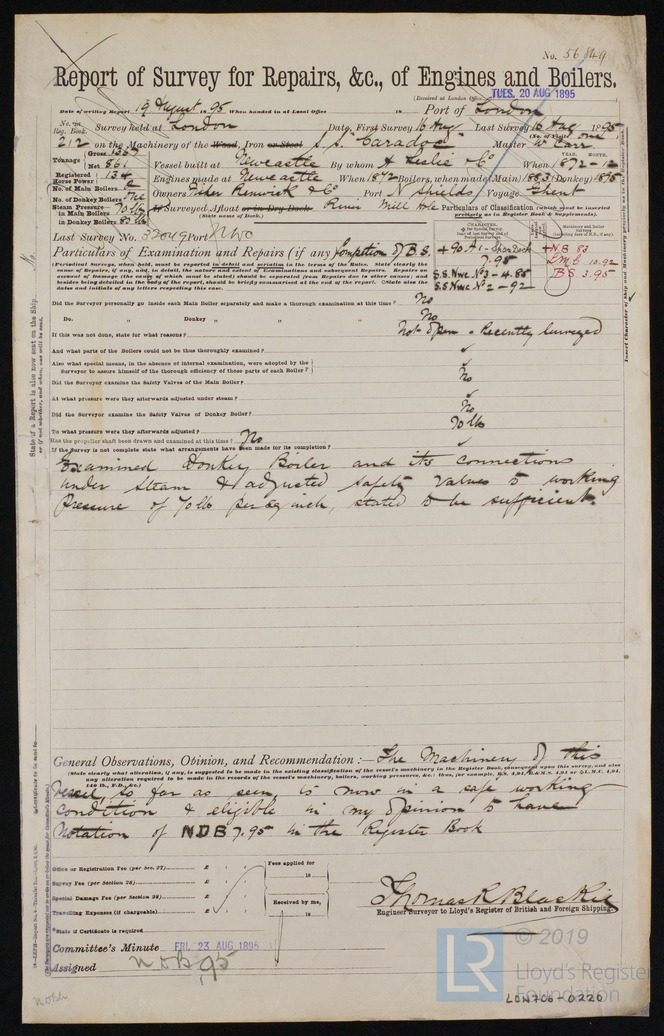 No. 56849
Report of Survey for Repairs, &c., of Engines and Boilers.
(Received at London Office
TUES. 20 AUG 1895
Date of writing Report 19 August 1895 When handed in at Local Office 18 Port of London
No. in Reg. Book
Survey held at London Date, First Survey 16 Aug Last Survey 16 Aug 1895
(No. of Visits one)
212 on the Machinery of the Wood, Iron or Steel S.S. "Caradoc" Master W Carr
Tonnage Gross Net 861
Vessel built at Newcastle By whom A Leslie & Co When 1872-12
YEAR. MONTH.
Registered Horse Power 134
Engines made at Newcastle When 1872 Boilers, when made (Main) 1883 (Donkey) 1875
No. of Main Boilers
No. of Donkey Boilers One
Owners Fisher Renwick & Co Port N Shields Voyage Ghent
Steam Pressure in Main Boilers 70 lb
in Donkey Boilers
If Surveyed Afloat or in Dry Dock River Mill Hole
(State name of Dock.)
Particulars of Classification (which must be inserted precisely as in Register Book & Supplements).
Last Survey No. 32049 Port NWC
Particulars of Examination and Repairs (if any) Completion of B.S.
+90 A1 - Spar Deck
7.95
S.S. Nwc. No 3 - 4.88
S.S Nwc. No 2 - 92
+N.B 83
LMC 10.92
B S 3.95
(Periodical Surveys, when held, must be reported in detail and seriatim in the terms of the Rules. State clearly the
besides being detailed in the body of the report, should be briefly summarised at the end of the report.
Did the Surveyor personally go inside each Main Boiler separately and make a thorough examination at this time? No
Do. " Donkey " " " No
If this was not done, state for what reasons? Not open - Recently Surveyed
And what parts of the Boilers could not be thus thoroughly examined? ✓
Also what special means, in the absence of internal examination, were adopted by the
Surveyor to assure himself of the thorough efficiency of those parts of each Boiler? ✓
Did the Surveyor examine the Safety Valves of the Main Boiler? No
At what pressure were they afterwards adjusted under steam? ✓
Did the Surveyor examine the Safety Valves of Donkey Boiler? No
To what pressure were they afterwards adjusted? 70 lb
Has the propeller shaft been drawn and examined at this time? No
If the Survey is not complete state what arrangements have been made for its completion? ✓
Examined Donkey Boiler and its connections
under steam & adjusted safety valves to working
Pressure of 70 lb per sq inch, stated to be sufficient.
General Observations, Opinion, and Recommendation:— The Machinery of this
(State clearly what alteration, if any, is suggested to be made in the existing classification of the vessel's machinery in the Register Book, consequent upon this survey, and also
any alteration required to be made in the records of the vessel's machinery, boilers, working pressures, &c.: thus, for example, B.S. 4,91, B.&M.S. 4,91 or L.M.C. 4,91,
140 lb., F.D., &c.)
Vessel, so far as seen, is now in a safe working
condition & eligible in my opinion to have
Notation of NDB 7.95 in the Register Book
Office or Registration Fee (per Sec. 27) £ : :
Survey Fee (per Section 28) £ : :
Special Damage Fee (per Section 28) £ : :
Travelling Expenses (if chargeable) £ : :
Fees applied for
18
Received by me,
18
Thomas R Blackie
Engineer Surveyor to Lloyd's Register of British and Foreign Shipping.
State if Certificate is required
Committee's Minute FRI. 23 AUG 1895
Assigned NDB 95
© 2019
LR
Lloyd's Register
Foundation
LON706-0220